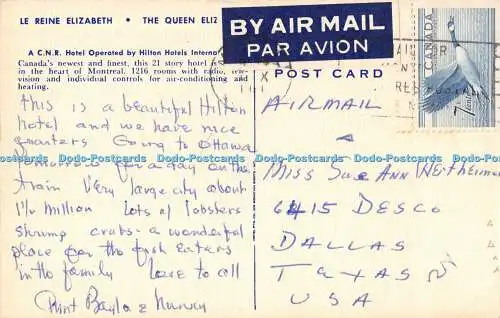 LE REINE ELIZABETH • THE QUEEN ELIZ
A C.N.R. Hotel Operated by Hilton Hotels Internat
Canada's newest and finest, this 21 story hotel is
in the heart of Montreal. 1216 rooms with radio, telev-
vision and individual controls for air-conditioning and
heating.
BY AIR MAIL
PAR AVION
CANADA
7 cents
POST CARD
AIRMAIL
This is a beautiful Hilton
hotel and we have nice
quarters Going to Ottawa
Tomorrow for a day on the
train Very large city about
1½ million Lots of lobsters
shrimp crabs - a wonderful
place for the fish eaters
in the family love to all
Miss Sue Ann Wertheimer
6415 DESCO
DALLAS
TEXAS
USA
Dodo-Postcards Dodo-Postcards Dodo-Postcards Dodo-Postcards Dodo-Postcards Dodo-Postcards